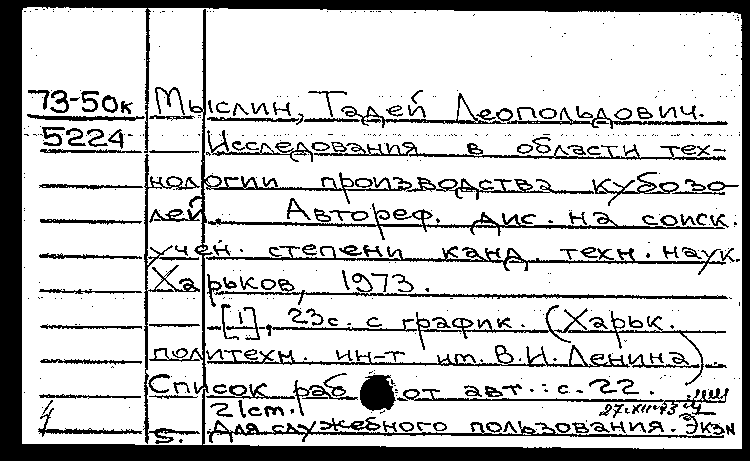 73-50к Мыслин, Тадей Леопольдович.
5224 Исследования в области тех-
нологии производства кубозо-
лей. Автореф. дис. на соиск.
учен. степени канд. техн. наук.
Харьков, 1973.
[1], 23с. с график. (Харьк.
политехн. ин-т им. В.И. Ленина).
Список раб от авт.: с. 22.
21cm. 27.XII.73
S. Для служебного пользования. Экз №